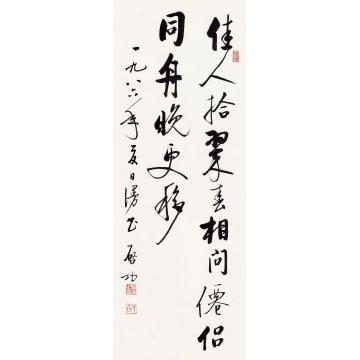 佳人拾翠春相问僊侣
同舟晚更移
一九八六年夏日漫书 启功